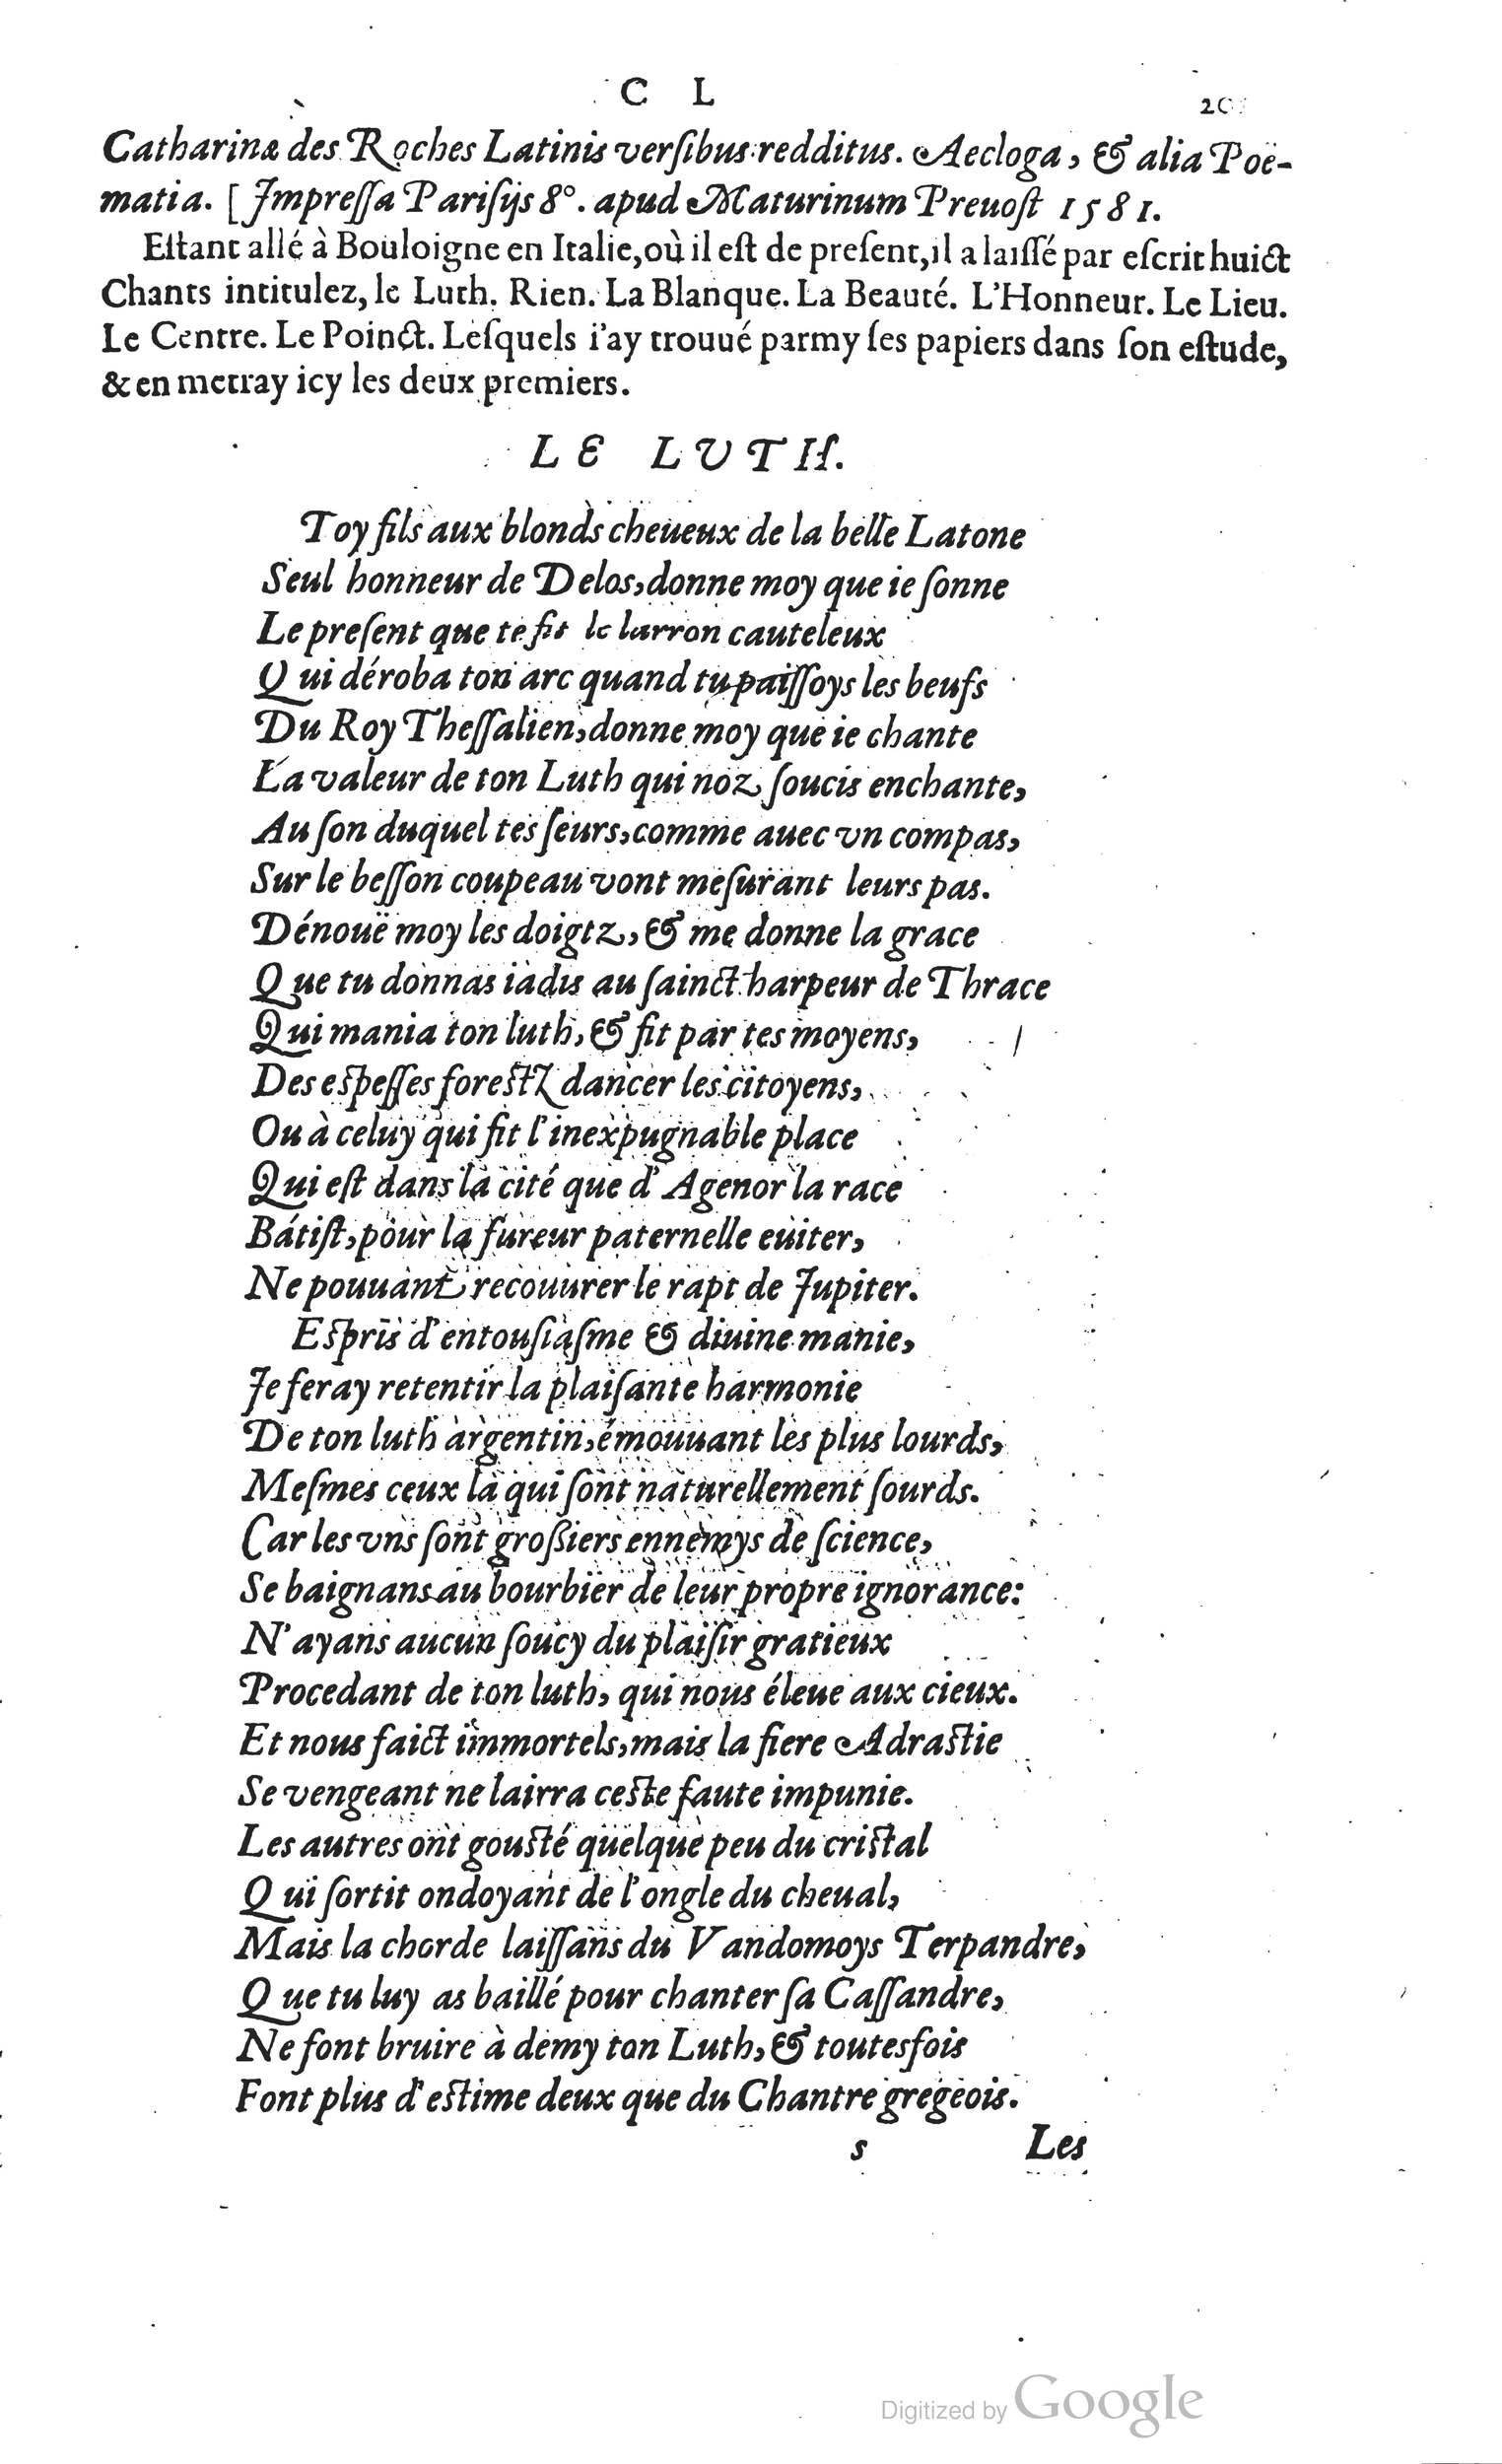 C L
Catharinæ des Roches Latinis verſibus redditus. Aecloga, & alia Poë-
matia. [Impreſſa Pariſijs 8°. apud Maturinum Preuoſt 1581.
Eſtant allé à Bouloigne en Italie, où il eſt de preſent, il a laiſſé par eſcrit huict
Chants intitulez, le Luth. Rien. La Blanque. La Beauté. L'Honneur. Le Lieu.
Le Centre. Le Poinct. Leſquels i'ay trouué parmy ſes papiers dans ſon eſtude,
& en mettray icy les deux premiers.
LE LUTH.
Toy fils aux blonds cheueux de la belle Latone
Seul honneur de Delos, donne moy que ie ſonne
Le preſent que te fit le larron cauteleux
Qui déroba ton arc quand tu paiſſoys les beufs
Du Roy Theſſalien, donne moy que ie chante
La valeur de ton Luth qui noz ſoucis enchante,
Au ſon duquel tes ſeurs, comme auec vn compas,
Sur le beſſon coupeau vont meſurant leurs pas.
Dénouë moy les doigtz, & me donne la grace
Que tu donnas iadis au ſainct harpeur de Thrace
Qui mania ton luth, & fit par tes moyens,
Des eſpeſſes foreſtz dancer les citoyens,
Ou à celuy qui fit l'inexpugnable place
Qui eſt dans la cité que d'Agenor la race
Bátiſt, pour la fureur paternelle euiter,
Ne pouuant recouurer le rapt de Jupiter.
Eſpris d'entouſiaſme & diuine manie,
Je feray retentir la plaiſante harmonie
De ton luth argentin, émouuant les plus lourds,
Meſmes ceux là qui ſont naturellement ſourds.
Car les vns ſont groſſiers ennemys de ſcience,
Se baignans au bourbier de leur propre ignorance:
N'ayans aucun ſoucy du plaiſir gratieux
Procedant de ton luth, qui nous éleue aux cieux.
Et nous faict immortels, mais la fiere Adraſtie
Se vengeant ne lairra ceſte faute impunie.
Les autres ont gouſté quelque peu du criſtal
Qui ſortit ondoyant de l'ongle du cheual,
Mais la chorde laiſſans du Vandomoys Terpandre,
Que tu luy as baillé pour chanter ſa Caſſandre,
Ne font bruire à demy ton Luth, & toutesfois
Font plus d'eſtime deux que du Chantre gregeois.
s Les
Digitized by Google